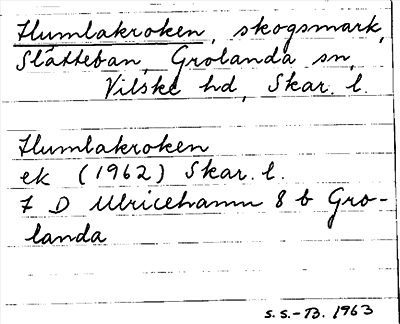 Humlakroken, skogsmark,
Slätteban, Grolanda sn,
Vilske hd, Skar. l.
Humlakroken
ek (1962) Skar. l.
7 D Ulricehamn 8 b Gro-
landa
S.S.-B. 1963